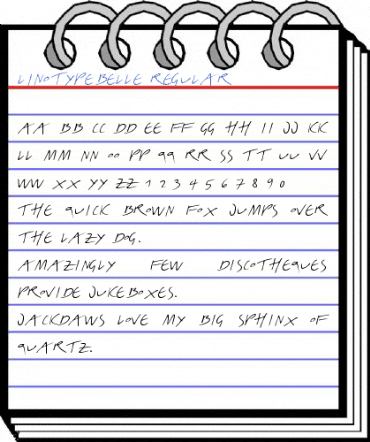 LINOTYPEBELLE REGULAR
AA BB CC DD EE FF GG HH II JJ KK
LL MM NN OO PP QQ RR SS TT UU VV
WW XX YY ZZ 1 2 3 4 5 6 7 8 9 0
THE QUICK BROWN FOX JUMPS OVER
THE LAZY DOG.
AMAZINGLY FEW DISCOTHEQUES
PROVIDE JUKEBOXES.
JACKDAWS LOVE MY BIG SPHINX OF
QUARTZ.